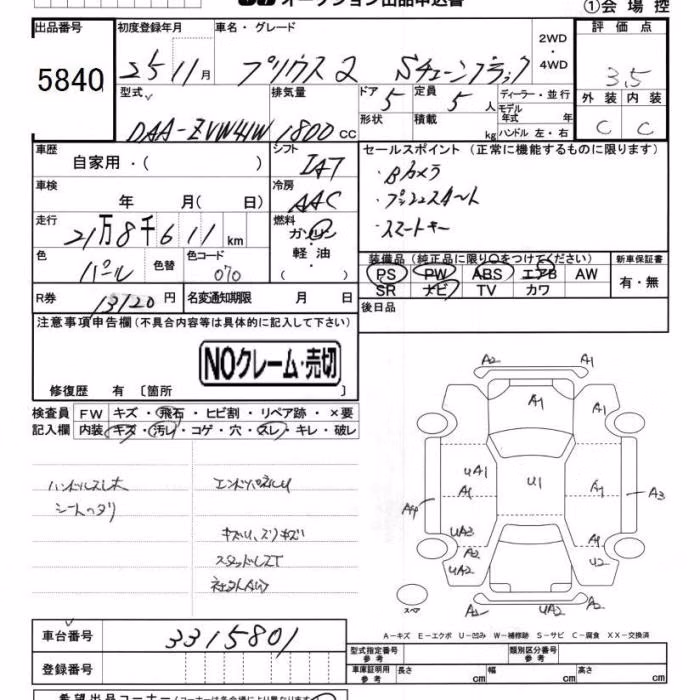 オークション出品申込書
①会場控
出品番号 5840
初度登録年月 25 11月
車名・グレード プリウスα Sチューンブラック
2WD・4WD
評価点 3.5
外装 C 内装 C
型式 DAA-ZVW41W
排気量 1800cc
ドア 5 定員 5人
形状 積載 kg
ディーラー・並行
モデル年式 年
ハンドル 左・右
車歴 自家用・( )
シフト IAT
セールスポイント(正常に機能するものに限ります)
・Bカメラ
・プッシュスタート
・スマートキー
車検 年 月(日)
冷房 AAC
走行 21万8千611km
燃料 ガソリン・軽油・( )
色 パール 色替 色コード 070
装備品(純正品に限り○をつけてください)
新車保証書 有・無
PS PW ABS エアB AW
SR ナビ TV カワ
R券 13120円
名変通知期限 月 日
後日品
注意事項申告欄(不具合内容等は具体的に記入して下さい)
NOクレーム・売切
修復歴 有 〔箇所 〕
検査員記入欄
FW キズ・飛石・ヒビ割・リペア跡・×要
内装 キズ・汚レ・コゲ・穴・スレ・キレ・破レ
ハンドルスレ大
シートヘタリ
キズU、スリキズ
A2 A1
A1 A1
UA1 U1
A1 A1
A4 A3
UA3 A1
A2 U2
UA2
A2 UA2 A2
スペア
A－キズ E－エクボ U－凹み W－補修跡 S－サビ C－腐食 XX－交換済
車台番号 3315801
登録番号
型式指定番号 参考
類別区分番号 参考
車庫証明用 参考 長さ cm 幅 cm 高さ cm
希望出品コーナー